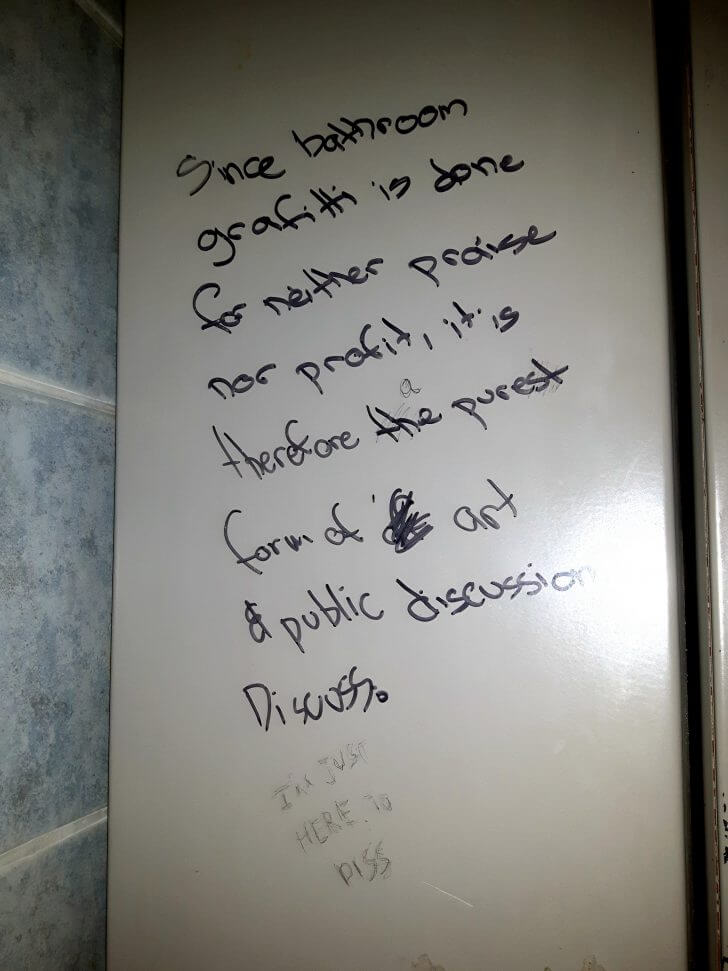 Since bathroom
grafitti is done
for neither praise
nor profit, it is
a
therefore the purest
form of art
& public discussion
Discuss.
I'm JUST
HERE TO
PISS